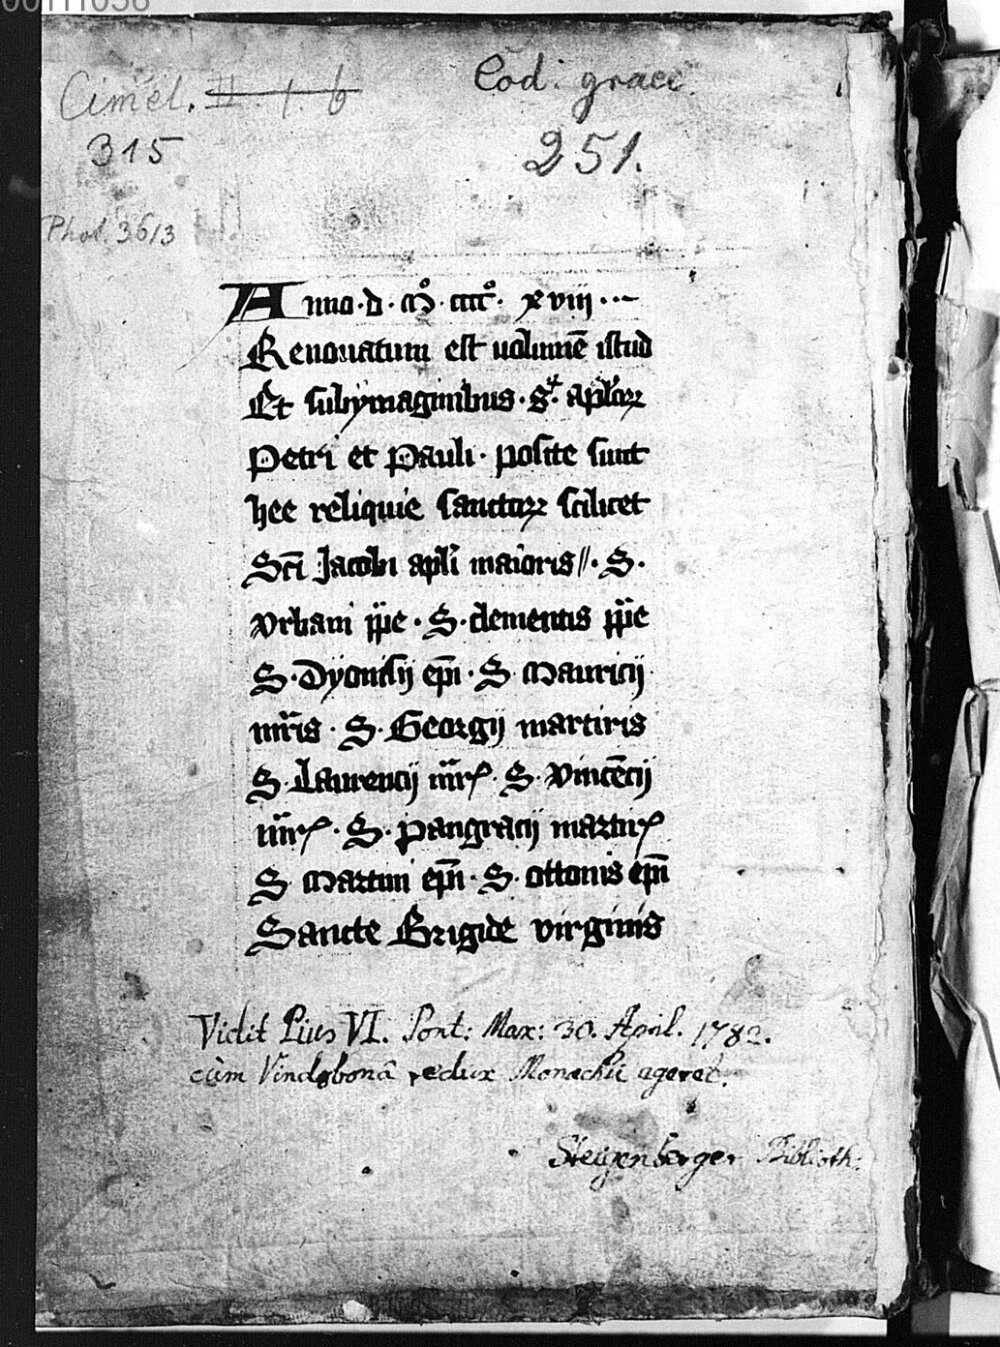 Cimel. II. 1. b
Cod. graec.
315
251.
Phot. 3613
Anno · d · mº · ccccº · xviij ·
Renouatum est uolumē istud
Et sub ymaginibus · s · aplorꝝ
Petri et Pauli · posite sunt
hee reliquie sanctorꝝ scilicet
Scī Jacobi apli maioris // · S ·
Vrbani ppe · S · clementis ppe
S · Dyonisij epi · S · Mauricij
mris · S · Georgij martiris
S · Laurencij mr · S · Vincēcij
mr · S · Pangracij martir
S · Martini epi · S · ottonis epi
Sancte Brigide virginis
Vidit Pius VI. Pont: Max: 30. April. 1782.
cùm Vindobonâ redux Monachii ageret.
Steigenberger Biblioth: